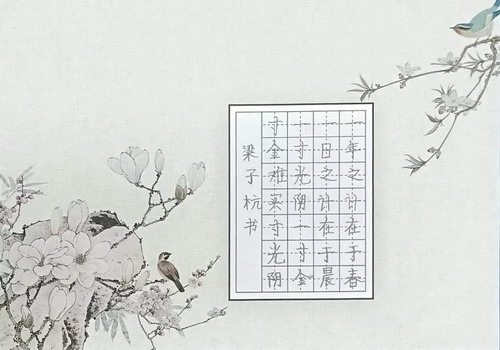 一年之计在于春
一日之计在于晨
一寸光阴一寸金
寸金难买寸光阴
梁子杭书